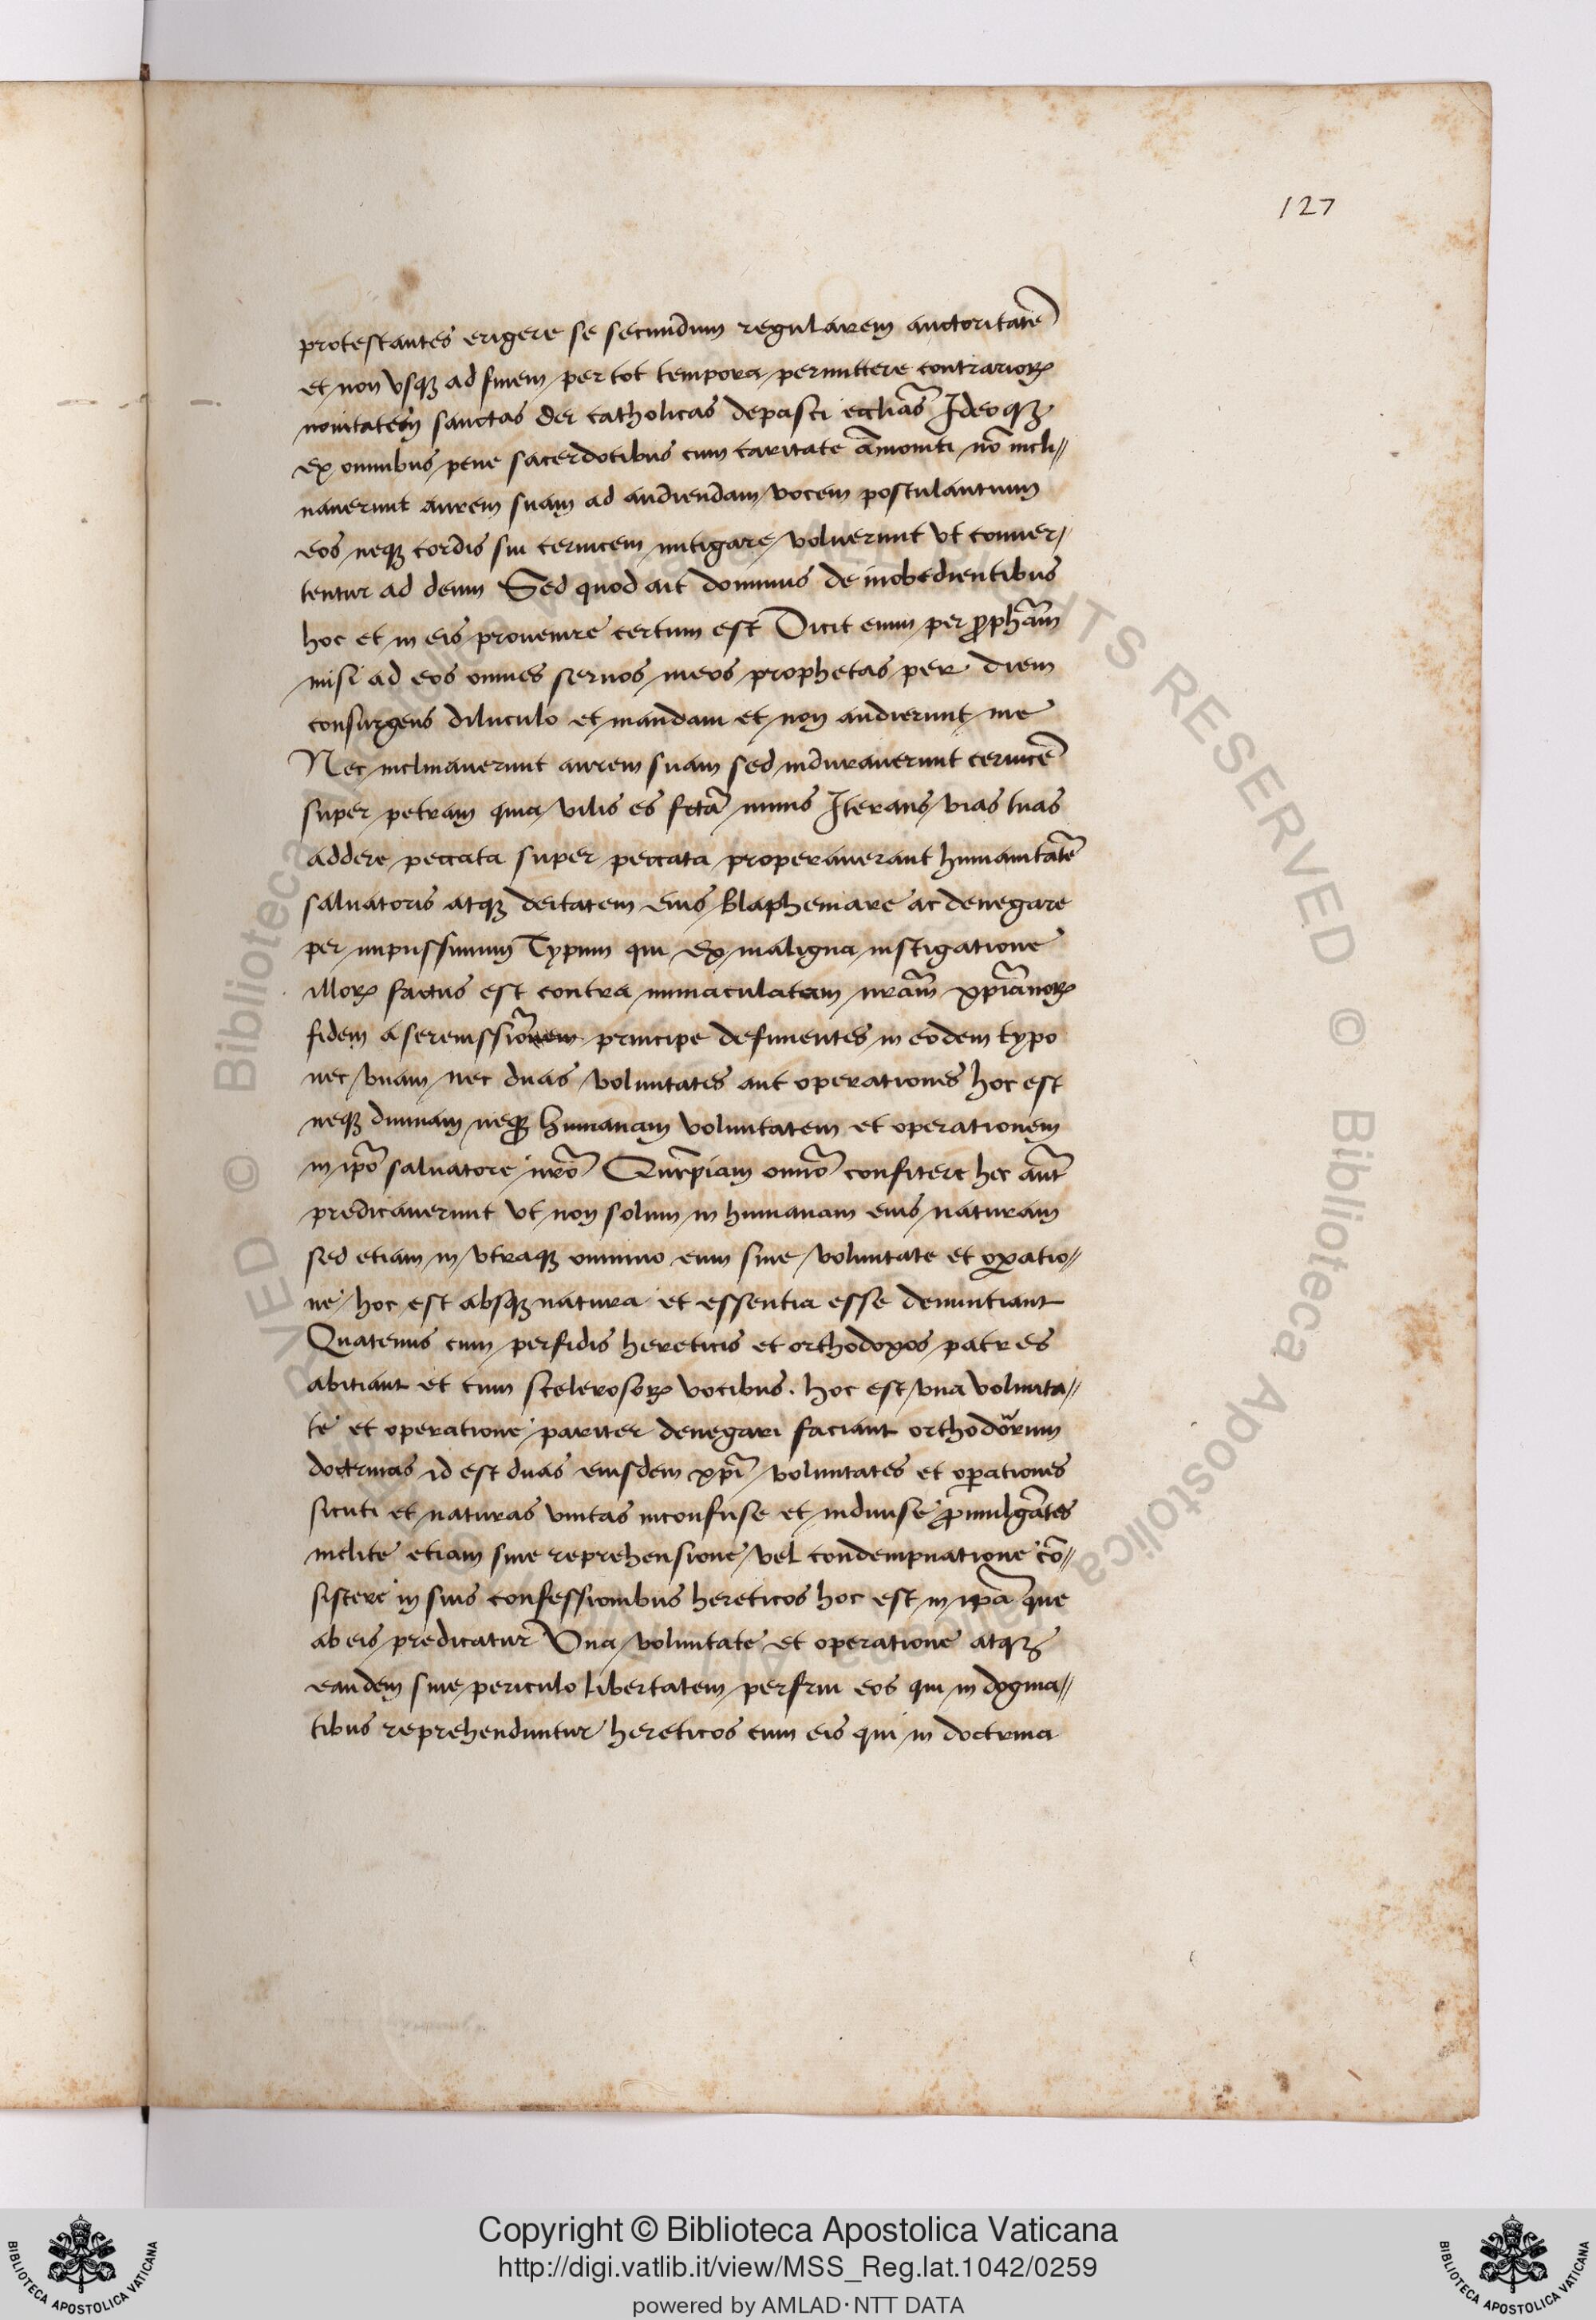 127
protestantes erigere se secundum regularem auctoritatē
et non vsqꝫ ad finem per tot tempora permittere contrarioꝝ
nouitatem sanctas dei catholicas depasci eccliās Ideoqꝫ
ex omnibus pene sacerdotibus cum caritate āmoniti nō incli//
nauerunt aurem suam ad audiendam vocem postulantium
eos neqꝫ cordis sui ceruicem mitigare voluerunt vt conuer/
tentur ad deum Sed quod ait dominus de inobedientibus
hoc et in eis prouenire certum est Dicit enim per ꝓphām
misi ad eos omnes seruos meos prophetas per diem
consurgens diluculo et mandaui et non audierunt me
Nec inclinauerunt aurem suam sed indurauerunt ceruicē
super petram quia vilis es fctā nimis Iterans vias tuas
addere peccata super peccata properauerant humanitatē
saluatoris atqꝫ deitatem eius blaphemare ac denegare
per impiissimum Typum qui ex maligna instigatione
illoꝝ factus est contra immaculatam nrām xpiānoꝝ
fidem a serenissiō principe definentes in eodem typo
nec vnam nec duas voluntates aut operationes hoc est
neqꝫ diuinam neqꝫ humanam voluntatem et operationem
in ipō saluatore nrō Quēpiam omnō confitere hec aūt
predicauerunt vt non solum in humanam eius naturam
sed etiam in vtraqꝫ omnino eum sine voluntate et oꝑatio//
ne hoc est absqꝫ natura et essentia esse denuntiant
Quatenus cum perfidis hereticis et orthodoxos patres
abitiant et cum scelerosoꝝ vocibus. hoc est vna volunta//
te et operatione pariter denegari faciant orthodōrum
doctrinas id est duas eiusdem xpī voluntates et oꝑationes
sicuti et naturas vnitas inconfuse et indiuise ꝓmulgātes
inclite etiam sine reprehensione vel condempnatione cō//
sistere in suis confessionibus hereticos hoc est in ipā que
ab eis predicatur Vna voluntate et operatione atqꝫ
eandem sine periculo libertatem perfrui eos qui in dogma//
tibus reprehenduntur hereticos cum eis qui in doctrina
Copyright © Biblioteca Apostolica Vaticana
http://digi.vatlib.it/view/MSS_Reg.lat.1042/0259
powered by AMLAD·NTT DATA
BIBLIOTECA APOSTOLICA VATICANA
BIBLIOTECA APOSTOLICA VATICANA